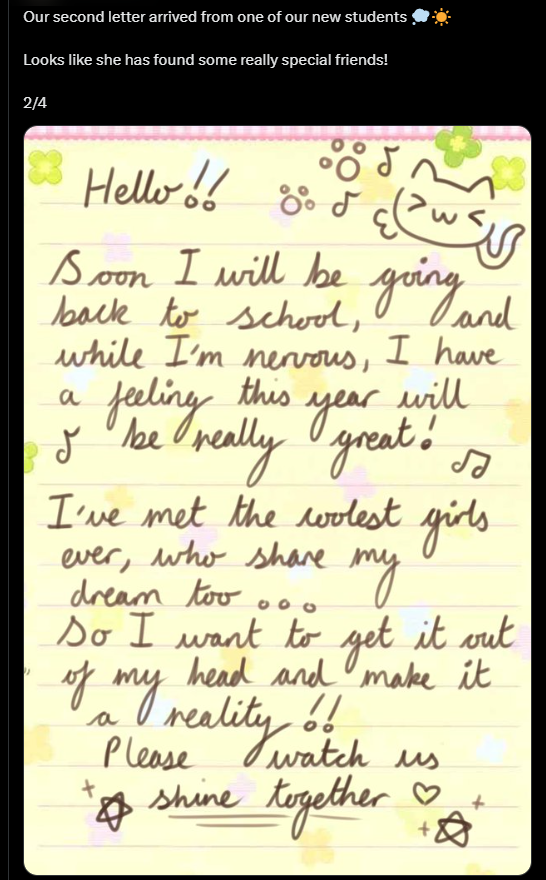 Our second letter arrived from one of our new students 💭☀️
Looks like she has found some really special friends!
2/4
Hello!!
>w<
Soon I will be going
back to school, and
while I'm nervous, I have
a feeling this year will
be really great!
I've met the coolest girls
ever, who share my
dream too...
So I want to get it out
of my head and make it
a reality!!
Please watch us
shine together ♡